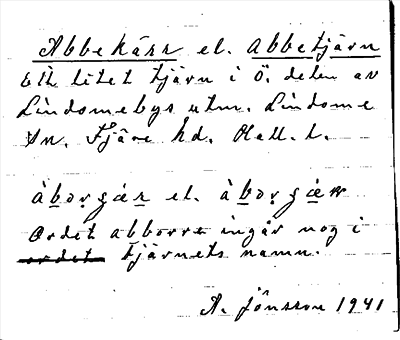 Abbekärr el. Abbetjärn
Ett litet tjärn i Ö. delen av
Lindomebys utm. Lindome
sn. Fjäre hd. Hall. l.
àbǫrgǽr el. àbǫrgǽn
Ordet abborre ingår nog i
ordet tjärnets namn.
A. Jönsson 1941